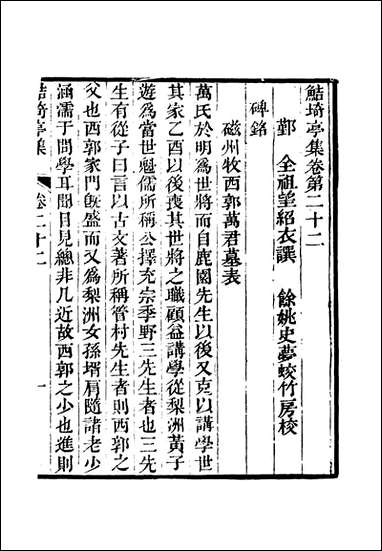 鮚埼亭集卷第二十二
鄞 全祖望紹衣譔 餘姚史夢蛟竹房校
碑銘
磁州牧西郭萬君墓表
萬氏於明爲世將而自鹿園先生以後又克以講學世
其家乙酉以後喪其世將之職顧益講學從梨洲黃子
遊爲當世魁儒所稱公擇充宗季野三先生者也三先
生有從子曰言以古文著所稱管村先生者則西郭之
父也西郭家門旣盛而又爲梨洲女孫壻肩隨諸老少
涵濡于問學耳聞目見總非凡近故西郭之少也進則
鮚埼亭集 卷二十二 一